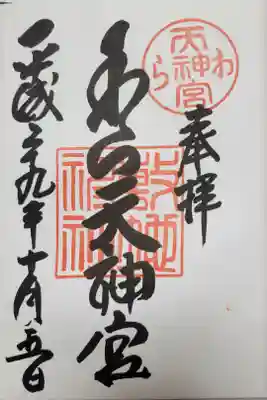 わら
天神宮
奉拝
わら天神宮
敷地
神社
平成二九年十月五日